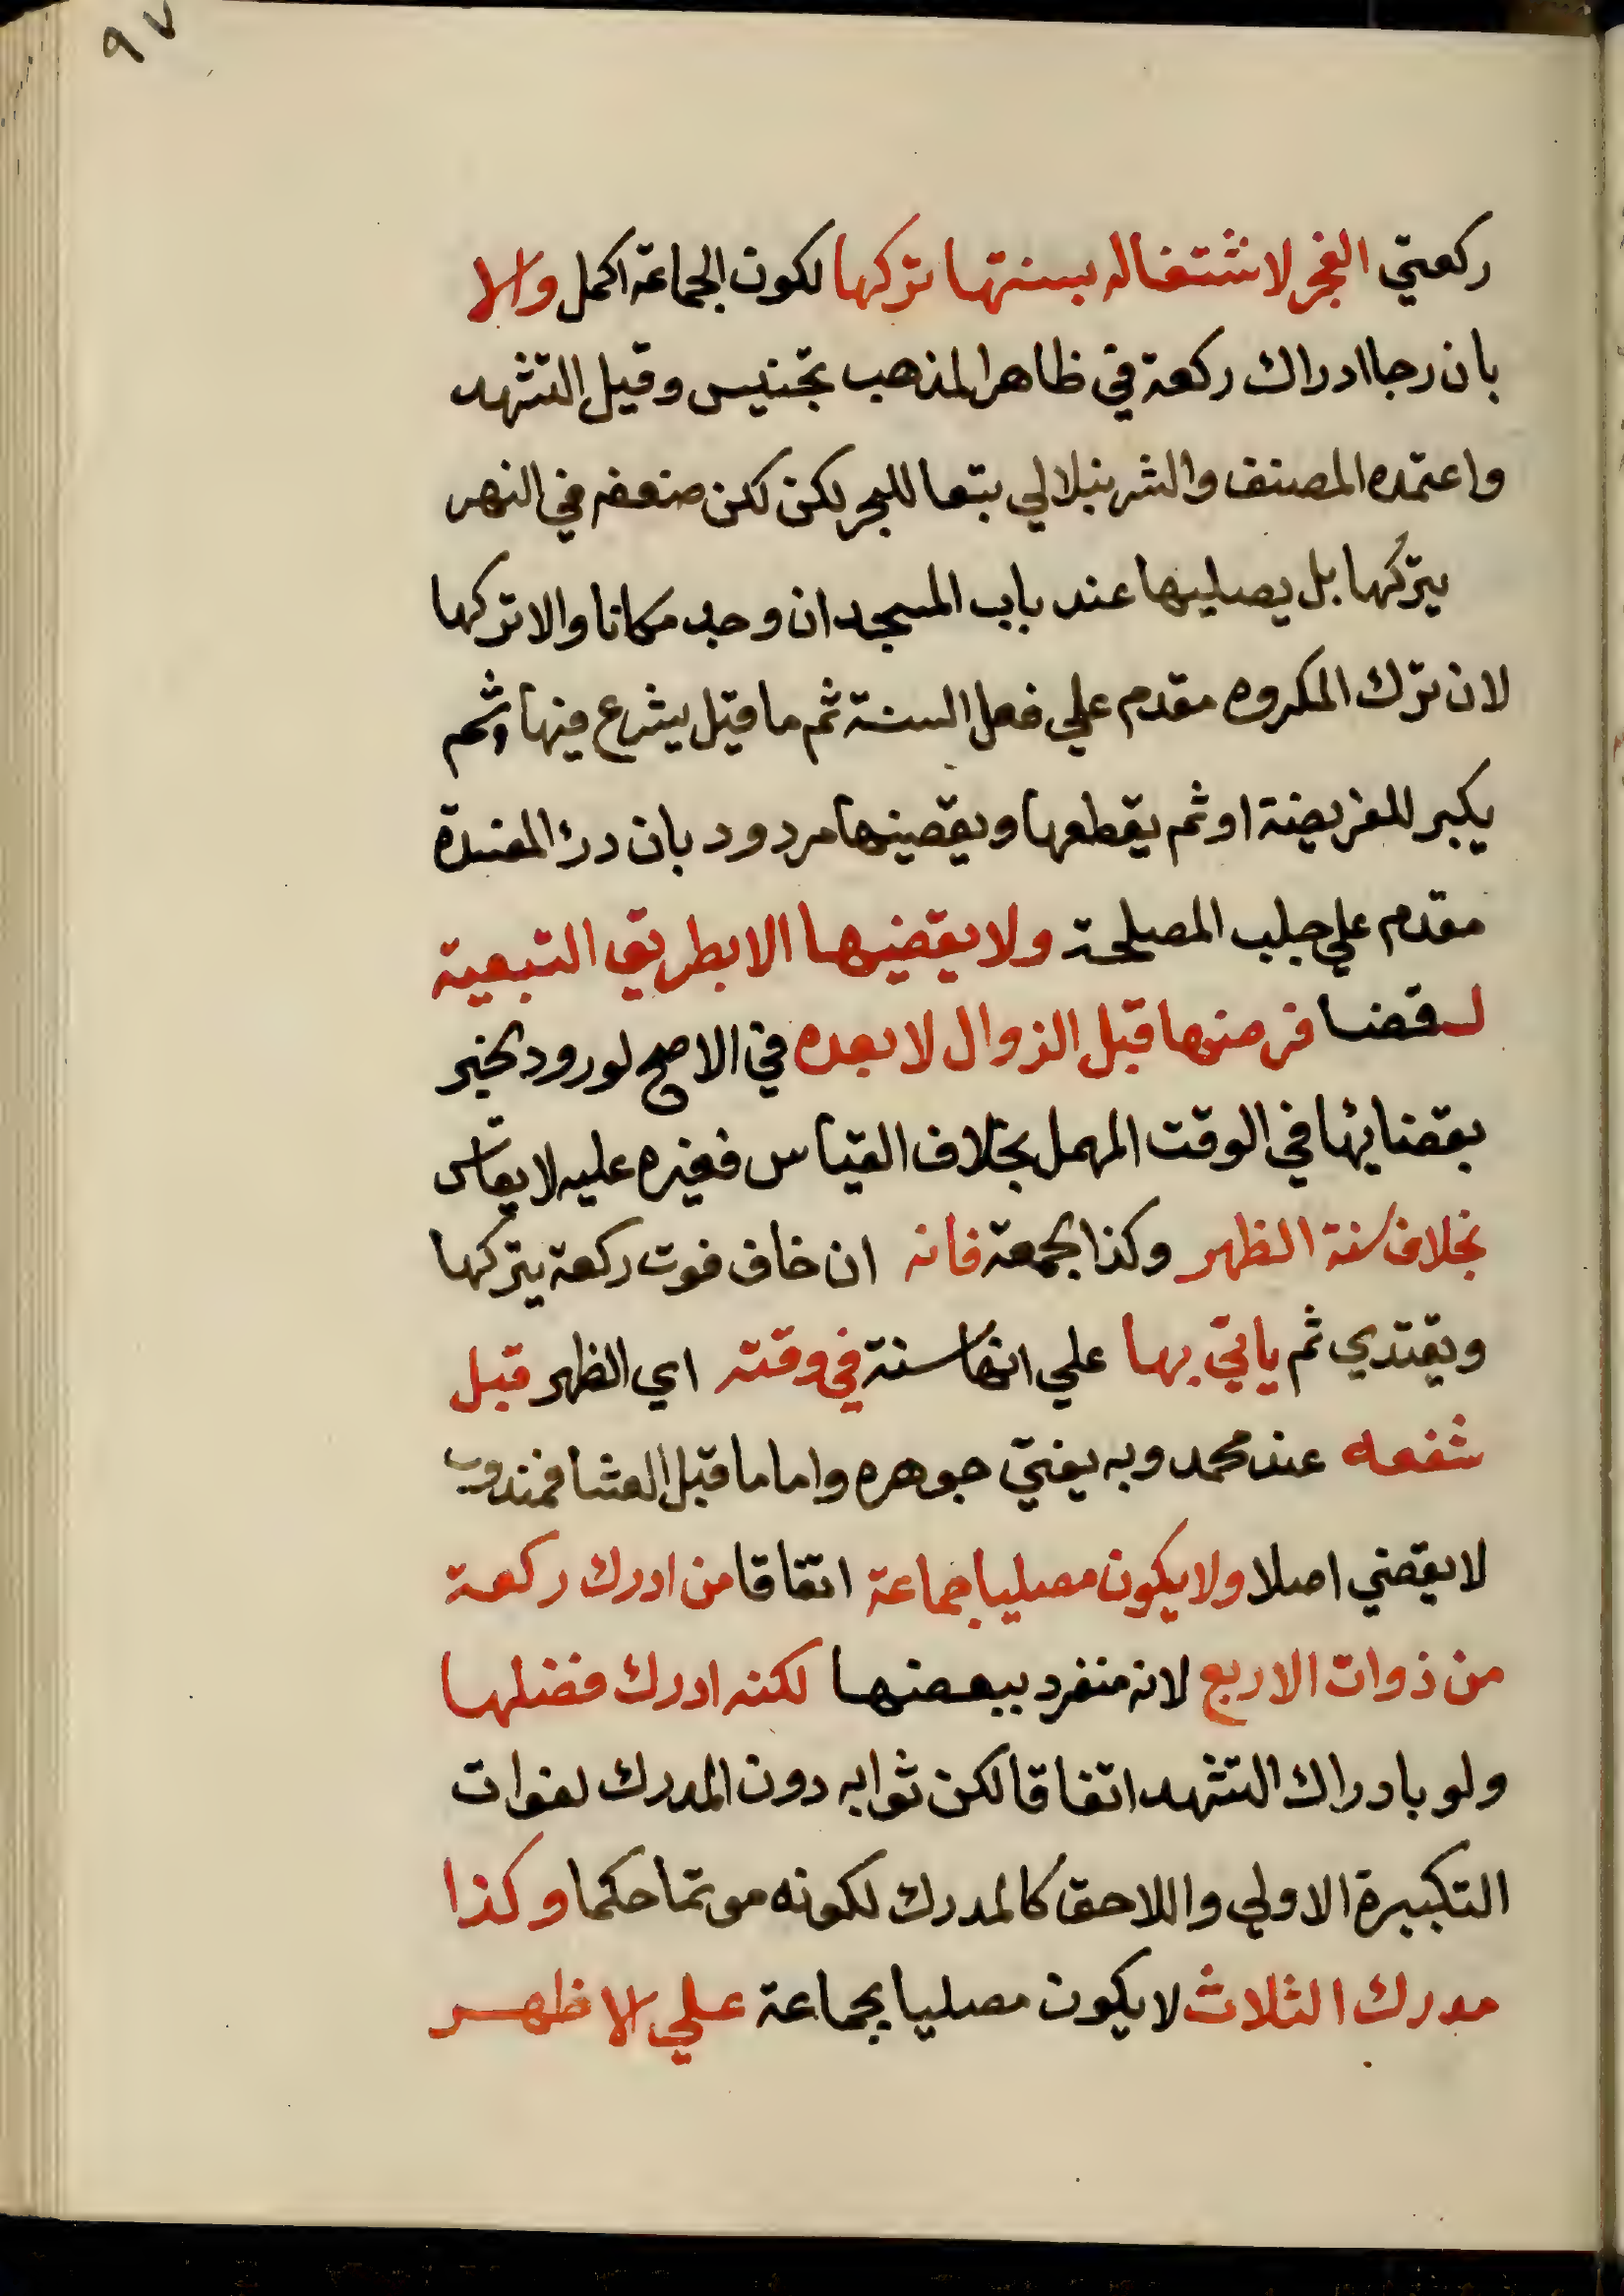 ٩٧
ركعتي الفجر لاشتغاله بسنتها تركها لكون الجماعة اكمل والا
بان رجا ادراك ركعة في ظاهر المذهب تجنيس وقيل التشهد
واعتمده المصنف والشرنبلالي بتعا للبحر لكن لكن ضعفه في النهر
يتركها بل يصليها عند باب المسجد ان وجد مكانا والا تركها
لان ترك المكروه مقدم علي فعل السنة ثم ما قيل يشرع فيها وثم
يكبر للفريضة او ثم يقطعها ويقضيها مردود بان درء المفسدة
مقدم علي جلب المصلحة ولا يقضيها الا بطريق التبعية
لـ قضا فرضها قبل الزوال لا بعده في الاصح لورود لخبر
بقضايها في الوقت المهمل بخلاف القياس فغيره عليه لا يقاس
بخلاف سنة الظهر وكذا الجمعة فانه ان خاف فوت ركعة يتركها
ويقتدي ثم ياتي بها علي انها سنة في وقته اي الظهر قبل
شفعه عند محمد وبه يفتي جوهره واما ما قبل العشا فمندوب
لا يقضي اصلا ولا يكون مصليا جماعة اتفاقا من ادرك ركعة
من ذوات الاربع لانه منفرد ببعضها لكنه ادرك فضلها
ولو بادراك التشهد اتفاقا لكن ثوابه دون المدرك لفوات
التكبيرة الاولي واللاحق كالمدرك لكونه موتما حكما وكذا
مدرك الثلاث لا يكون مصليا بجماعة علي الاظهر